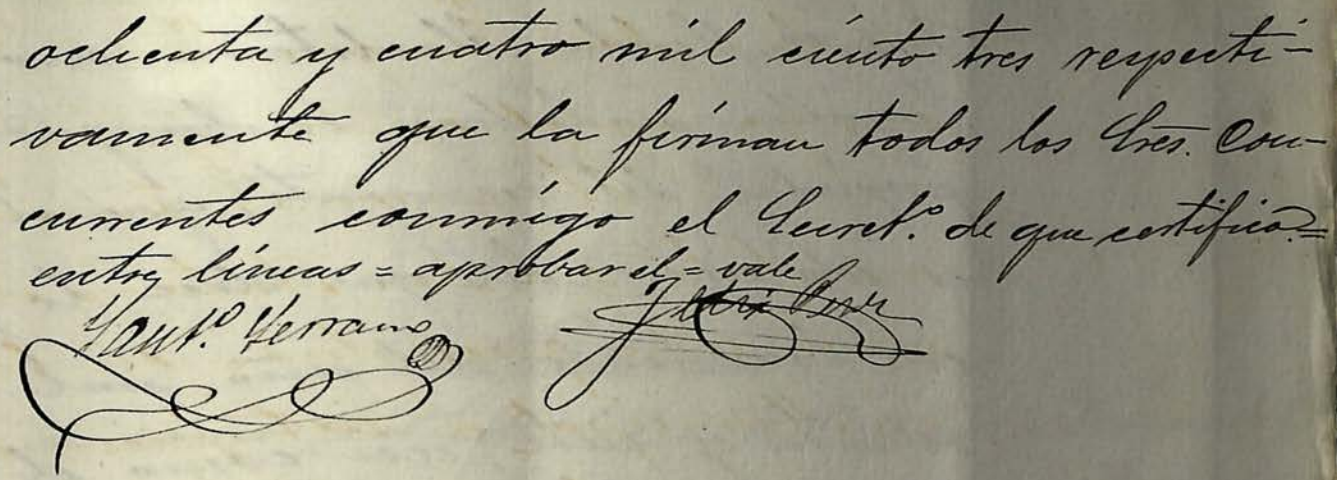 ochenta y cuatro mil ciento tres respecti-
vamente que la firman todos los Sres. Con-
currentes conmigo el Secret.º de que certifico.=
entre líneas = aprobar el = vale
Sant.º Serrano
Felix